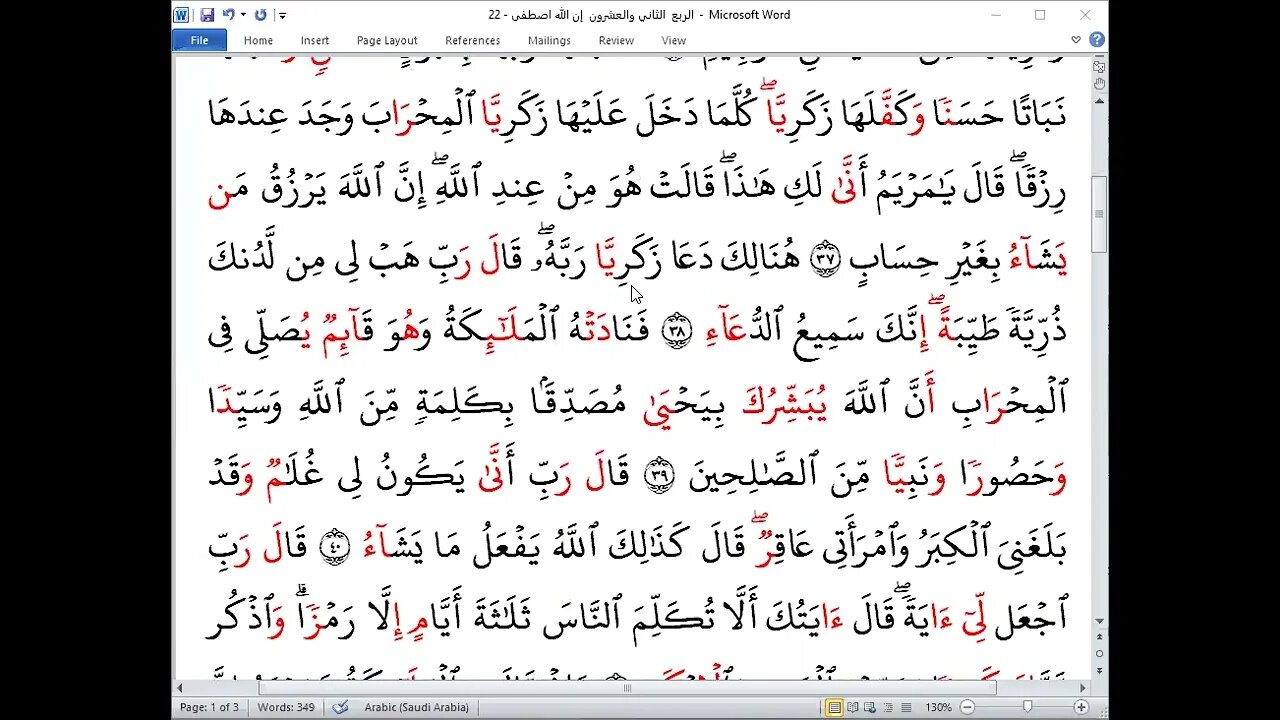 الربع الثاني والعشرون إن الله اصطفى - 22 - Microsoft Word
File Home Insert Page Layout References Mailings Review View
نَبَاتًا حَسَنٗا وَكَفَّلَهَا زَكَرِيَّاۖ كُلَّمَا دَخَلَ عَلَيۡهَا زَكَرِيَّا ٱلۡمِحۡرَابَ وَجَدَ عِندَهَا
رِزۡقٗاۖ قَالَ يَٰمَرۡيَمُ أَنَّىٰ لَكِ هَٰذَاۖ قَالَتۡ هُوَ مِنۡ عِندِ ٱللَّهِۖ إِنَّ ٱللَّهَ يَرۡزُقُ مَن
يَشَآءُ بِغَيۡرِ حِسَابٍ ٣٧ هُنَالِكَ دَعَا زَكَرِيَّا رَبَّهُۥۖ قَالَ رَبِّ هَبۡ لِي مِن لَّدُنكَ
ذُرِّيَّةٗ طَيِّبَةًۖ إِنَّكَ سَمِيعُ ٱلدُّعَآءِ ٣٨ فَنَادَتۡهُ ٱلۡمَلَٰٓئِكَةُ وَهُوَ قَآئِمٞ يُصَلِّي فِي
ٱلۡمِحۡرَابِ أَنَّ ٱللَّهَ يُبَشِّرُكَ بِيَحۡيَىٰ مُصَدِّقَۢا بِكَلِمَةٖ مِّنَ ٱللَّهِ وَسَيِّدٗا
وَحَصُورٗا وَنَبِيّٗا مِّنَ ٱلصَّٰلِحِينَ ٣٩ قَالَ رَبِّ أَنَّىٰ يَكُونُ لِي غُلَٰمٞ وَقَدۡ
بَلَغَنِيَ ٱلۡكِبَرُ وَٱمۡرَأَتِي عَاقِرٞۖ قَالَ كَذَٰلِكَ ٱللَّهُ يَفۡعَلُ مَا يَشَآءُ ٤٠ قَالَ رَبِّ
ٱجۡعَل لِّيٓ ءَايَةٗۖ قَالَ ءَايَتُكَ أَلَّا تُكَلِّمَ ٱلنَّاسَ ثَلَٰثَةَ أَيَّامٍ إِلَّا رَمۡزٗاۗ وَٱذۡكُر
Page: 1 of 3 Words: 349 Arabic (Saudi Arabia) 130%